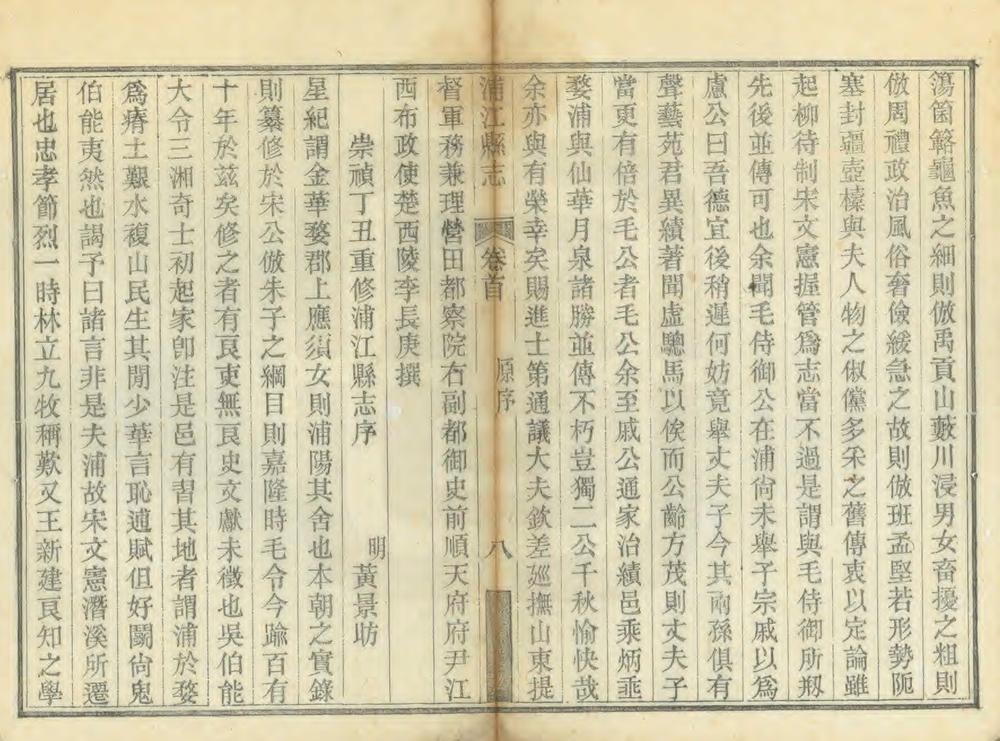 蕩箘簵龜魚之細則倣禹貢山藪川浸男女畜擾之粗則
倣周禮政治風俗奢儉緩急之故則倣班孟堅若形勢阨
塞封疆壺榛與夫人物之俶儻多采之舊傳衷以定論雖
起柳待制宋文憲握管爲志當不過是謂與毛侍御所剏
先後並傳可也余聞毛侍御公在浦尙未舉子宗戚以爲
慮公曰吾德宜後稍遲何妨竟舉丈夫子今其兩孫俱有
聲藝苑君異績著聞虛驄馬以俟而公齡方茂則丈夫子
當更有倍於毛公者毛公余至戚公通家治績邑乘炳埀
婺浦與仙華月泉諸勝並傳不朽豈獨二公千秋愉快哉
余亦與有榮幸矣賜進士第通議大夫欽差廵撫山東提
浦江縣志 卷首 原序 八
督軍務兼理營田都察院右副都御史前順天府府尹江
西布政使楚西陵李長庚撰
崇禎丁丑重修浦江縣志序
明 黃景昉
星紀謂金華婺郡上應須女則浦陽其舍也本朝之實錄
則纂修於宋公倣朱子之綱目則嘉隆時毛令今踰百有
十年於茲矣修之者有良吏無良史文獻未徵也吳伯能
大令三湘奇士初起家卽注是邑有習其地者謂浦於婺
爲瘠土艱水複山民生其閒少華言恥逋賦但好鬬尙鬼
伯能夷然也謁予曰諸言非是夫浦故宋文憲潛溪所遷
居也忠孝節烈一時林立九牧稱歎又王新建良知之學